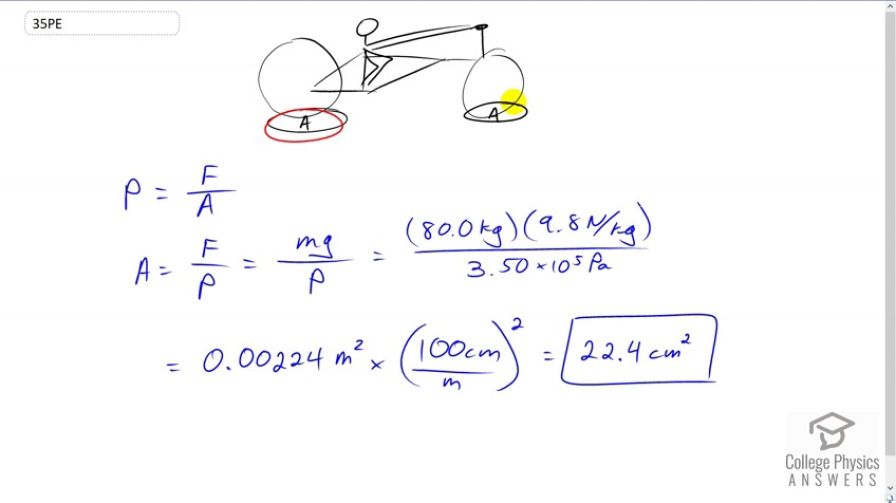 35PE
A A
P = F/A
A = F/P = mg/P = (80.0 kg)(9.8 N/kg)/3.50 × 10⁵ Pa
= 0.00224 m² × (100cm/m)² = 22.4 cm²
College Physics
ANSWERS